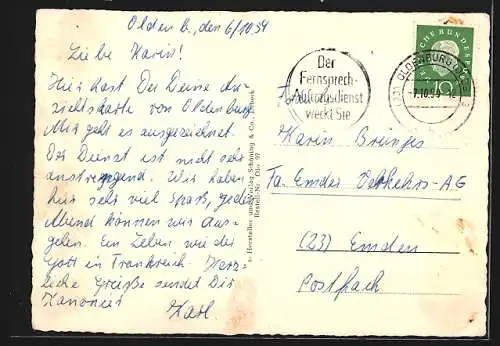 Oldenb., den 6/10.59
Liebe Karin!
Hier hast Du Deine An-
sichtskarte von Oldenburg.
Mir geht es ausgezeichnet.
Der Dienst ist nicht sehr
anstrengend. Wir haben
hier sehr viel Spaß, jeden
Abend können wir aus-
gehen. Ein Leben wie der
Gott in Frankreich. Herz-
liche Grüße sendet Dir
Karl.
Hersteller und Verlag Schöning & Co., Lübeck
Bestell-Nr. Old 97
Der
Fernsprech-
Auftragsdienst
weckt Sie
(23) OLDENBURG (OLDB)
-7.10.59
DEUTSCHE BUNDESPOST
10
Fräulein
Karin
Fa. Emder Verkehrs-AG
(23) Emden
Postfach